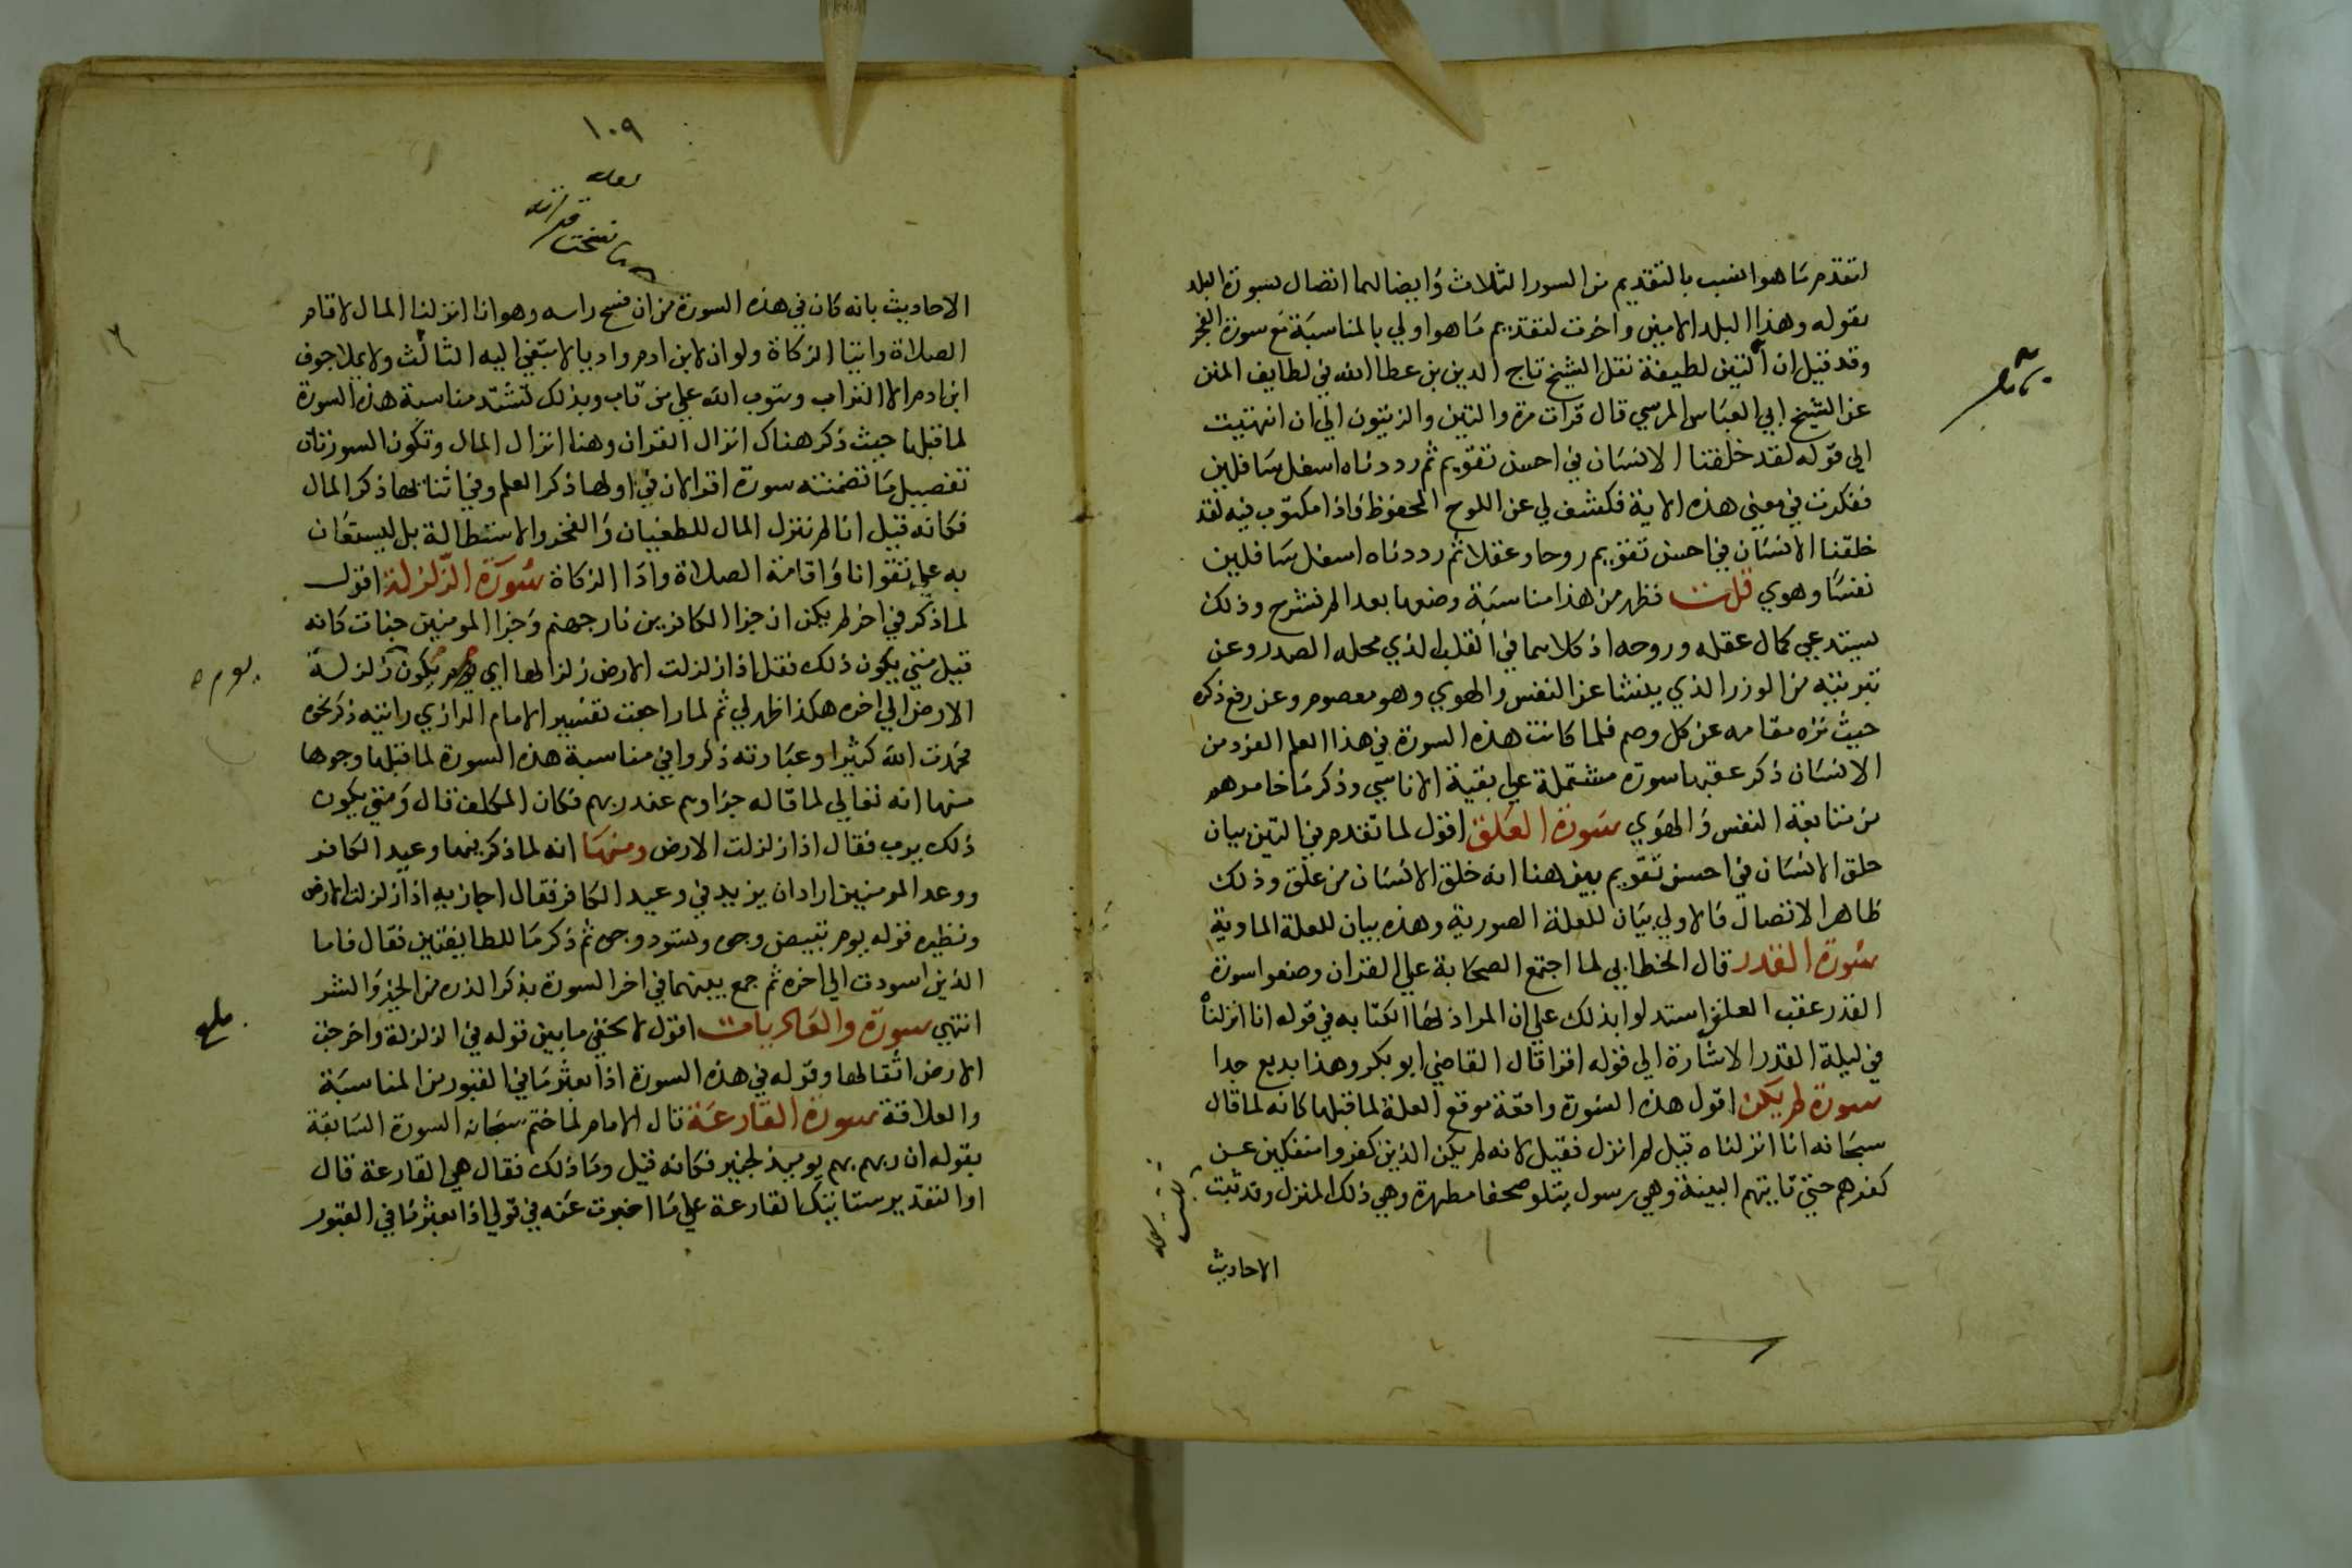 لتقدم ما هو انسب بالتقديم من السور الثلاث وايضا لما اتصال بسورة البلد
بقوله وهذا البلد الامين واخرت لتقديم ما هو اولي بالمناسبة مع سورة الفجر
وقد قيل ان التين لطيفة نقل الشيخ تاج الدين بن عطا الله في لطايف المنن
عن الشيخ ابي العباس المرسي قال قرات مرة والتين والزيتون الي ان انتهيت
الي قوله لقد خلقنا الانسان في احسن تقويم ثم رددناه اسفل سافلين
ففكرت في معني هذه الاية فكشف لي عن اللوح المحفوظ فاذا مكتوب فيه لقد
خلقنا الانسان في احسن تقويم روحا وعقلا ثم رددناه اسفل سافلين
نفسا وهوي قلت فظهر من هذا مناسبة وضعها بعد الم نشرح وذلك
يستدعي كمال عقله وروحه اذ كلاهما في القلب الذي محله الصدر وعن
تبريته من الوزر الذي ينشا عن النفس والهوي وهو معصوم وعن رفع ذكره
حيث نزه مقامه عن كل وصم فلما كانت هذه السورة في هذا العلم الفرد من
الانسان ذكر عقبها سورة مشتملة علي بقية الاناسي وذكر ما خامرهم
من متابعة النفس والهوي سورة العلق اقول لما تقدم في التين بيان
خلق الانسان في احسن تقويم بين هنا انه خلق الانسان من علق وذلك
ظاهر الاتصال فالاولي بيان للعلة الصورية وهذه بيان للعلة المادية
سورة القدر قال الخطابي لما اجتمع الصحابة علي القران وضعوا سورة
القدر عقب العلق استدلوا بذلك علي ان المراد لها الكتابه في قوله انا انزلناه
في ليلة القدر الاشارة الي قوله اقرا قال القاضي ابو بكر وهذا بديع جدا
سورة لم يكن اقول هذه السورة واقعة موقع العلة لما قبلها كانه لما قال
سبحانه انا انزلناه قيل لم انزل فقيل لانه لم يكن الذين كفروا منفكين عن
كفرهم حتي تاتيهم البينة وهي رسول يتلو صحفا مطهرة وهي ذلك المنزل وقد ثبت
الاحاديث
١٠٩
لعله
ما نسخت
الاحاديث بانه كان في هذه السورة من ان فسح راسه وهو انا انزلنا المال لاقام
الصلاة وايتا الزكاة ولو ان لابن ادم واديا لابتغي اليه الثالث ولا يملا جوف
ابن ادم الا التراب ويتوب الله علي من تاب وبذلك تشتد مناسبة هذه السورة
لما قبلها حيث ذكر هناك انزال القران وهنا انزال المال وتكون السورتان
تفصيل ما تضمنته سورة اقرا لان في اولها ذكر العلم وفي اثنائها ذكر المال
فكانه قيل انا لم ننزل المال للطغيان والفخر والاستطالة بل ليستعان
به علي تقوانا واقامة الصلاة واد الزكاة سورة الزلزلة اقول
لما ذكر في اخر لم يكن ان جزا الكافرين نار جهنم وجزا المومنين جنات كانه
قيل متي يكون ذلك فقل اذا زلزلت الارض زلزالها اي يكون زلزلة
يوم
الارض الي اخره هكذا ظهر لي ثم لما راجعت تفسير الامام الرازي رايته ذكر نحوه
فحمدت الله كثيرا وعبارته ذكروا في مناسبة هذه السورة لما قبلها وجوها
منها انه تعالي لما قاله جزاوهم عند ربهم فكان المكلف قال ومتي يكون
ذلك يرب فقال اذا زلزلت الارض ومنها انه لما ذكر فيها وعيد الكافر
ووعد المومنين اراد ان يزيد في وعيد الكافر فقال اجازيه اذا زلزلت الارض
ونظيره قوله يوم تبيض وجوه وتسود وجوه ثم ذكر ما للطايفتين فقال فاما
الذين اسودت الي اخره ثم جمع بينهما في اخر السورة بذكر الذره من الخير والشر
انتهي سورة والعاديات اقول لا يخفي ما بين قوله في الزلزلة واخرجت
الارض اثقالها وقوله في هذه السورة اذا بعثر ما في القبور من المناسبة
والعلاقة سورة القارعة قال الامام لما ختم سبحانه السورة السابقة
بقوله ان ربهم بهم يوميذ لخبير فكانه قيل وما ذلك فقال هي القارعة قال
او التقدير ستاتيك القارعة علي ما اخبرت عنه في قولي اذا بعثر ما في القبور